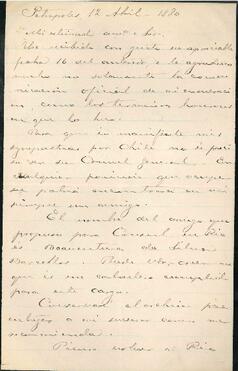 Petropolis, 12 Abril - 1880
Mi estimado amº i Sor.
He recibido con gusto su apreciable
fecha 16 del and le agradezco
mucho no solamente la comu
nicacion oficial de mi
como los terminos honrosos
en que lo hace.
Para que le manifieste mis
sympathias por Chile no es preci
so ser de Consul Jeneral. En
cualquier posicion que ocupe
su patria encontrará en mi
siempre un amigo.
El nombre del amigo que
propuse para Consul en Rio
es Boaventura da Silva
Barcellos. Puede Ud. creer
que es un caballero cumplido
para este cargo.
Conservaré el archivo para
entregar a mi sucesor como me
recomienda.
Pienso volver a Rio